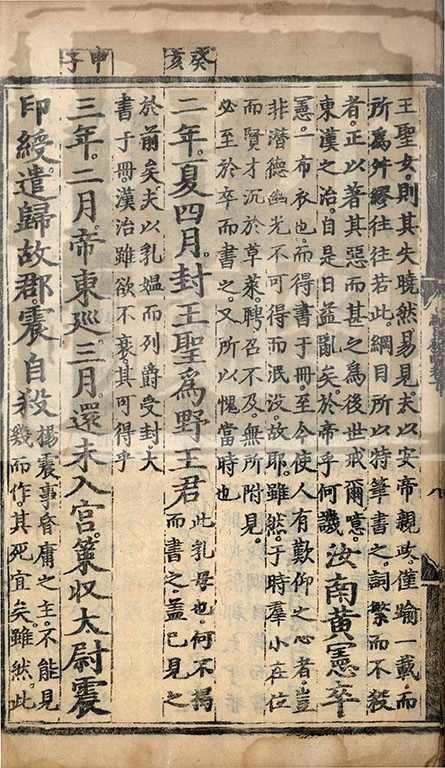 癸亥
甲子
王聖女。則其失曉然易見。夫以安帝親政。僅踰一載。而
所爲舛繆往往若此。綱目所以特筆書之。詞繁而不殺
者。正以著其惡而甚之。爲後世戒爾。噫。
東漢之治。自是日益亂矣。於帝乎何譏
汝南黃憲卒
憲。一布衣也。而得書于冊。至今使人有歎仰之心者。豈
非潛德幽光。不可得而泯沒故耶。雖然。于時羣小在位
而賢才沉於草萊。聘召不及。無所附見。
必至於卒而書之。又所以愧當時也
二年。夏四月。封王聖爲野王君
此乳母也。何不揭
而書之。蓋已見之
於前矣。夫以乳媼而列爵受封。大
書于冊。漢治雖欲不衰。其可得乎
三年。二月。帝東巡。三月。還未入宮。策收太尉震
印綬。遣歸故郡。震自殺
楊震事昏庸之主。不能見
幾而作。其死宜矣。雖然。此